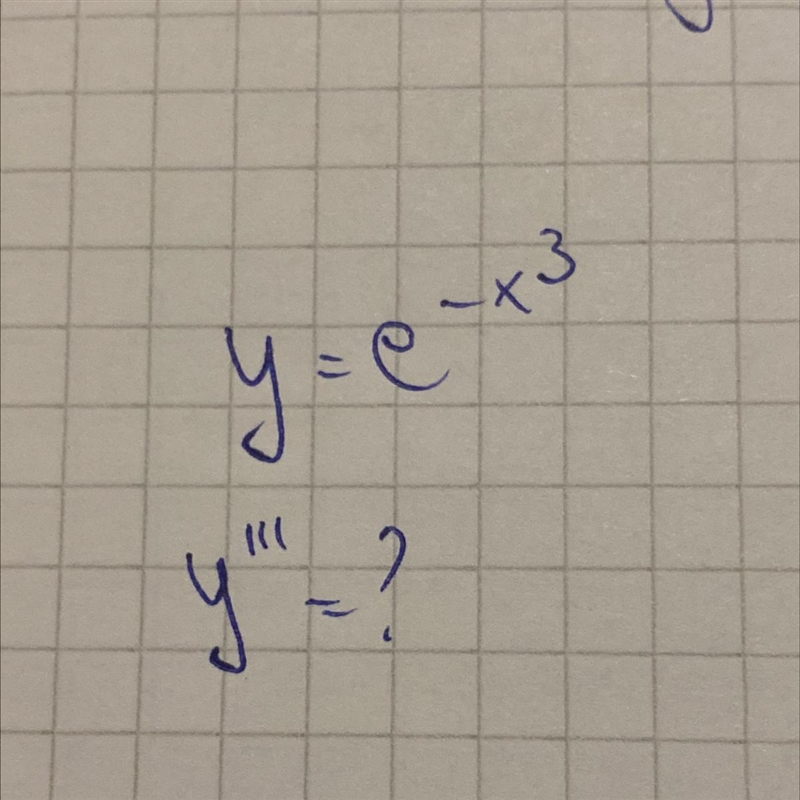 y = e^{-x^3}
y''' = ?